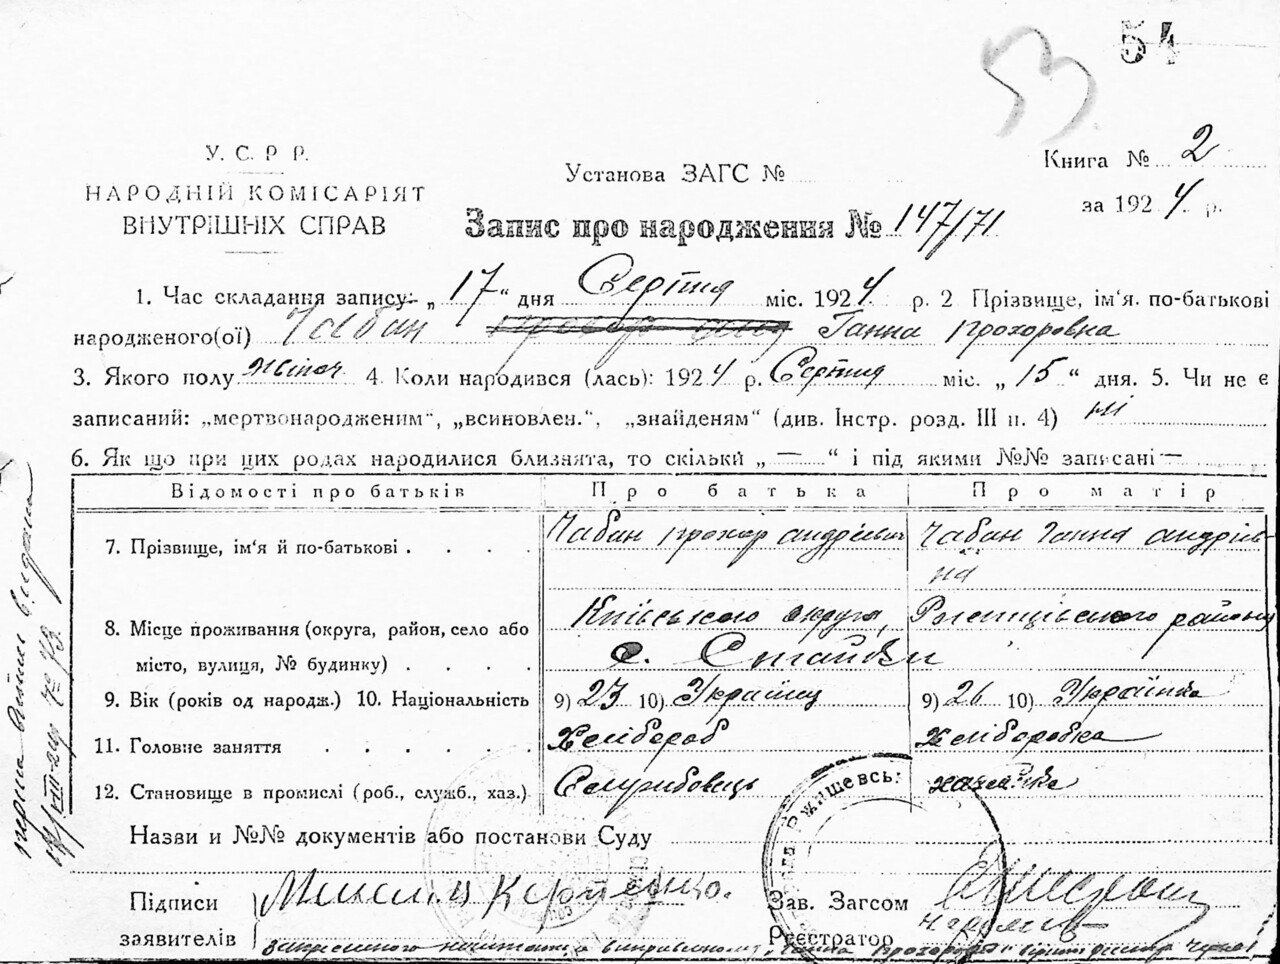 53 54
У. С. Р Р.
НАРОДНІЙ КОМІСАРІЯТ
ВНУТРІШНІХ СПРАВ
Установа ЗАГС №
Книга № 2
за 1924 р.
Запис про народження № 147/71
1. Час складання запису: „17“ дня Серпня міс. 1924 р. 2 Прізвище, ім'я. по-батькові
народженого(ої) Чабан Ганна Прохоровна
3. Якого полу жіноч 4. Коли народився (лась): 1924 р. Серпня міс. „15“ дня. 5. Чи не є
записаний: „мертвонародженим“, „всиновлен.“, „знайденям“ (див. Інстр. розд. III п. 4) ні
6. Як що при цих родах народилися близнята, то скільки „ — “ і під якими №№ записані —
Відомості про батьків Про батька Про матір
7. Прізвище, ім'я й по-батькові . . . . Чабан Прохор Андрієвич Чабан Ганна Андріїв-
на
8. Місце проживання (округа, район, село або Київською округа, Ржищівського району
місто, вулиця, № будинку) . . . . с. Стайки
9. Вік (років од народж.) 10. Національність 9) 23 10) Українц 9) 26 10) Українка
11. Головне заняття . . . . . Хлібороб Хліборобка
12. Становище в промислі (роб., служб., хаз.) Службовець хазяйка
Назви и №№ документів або постанови Суду
Підписи
заявителів
Зав. Загсом
Реєстратор